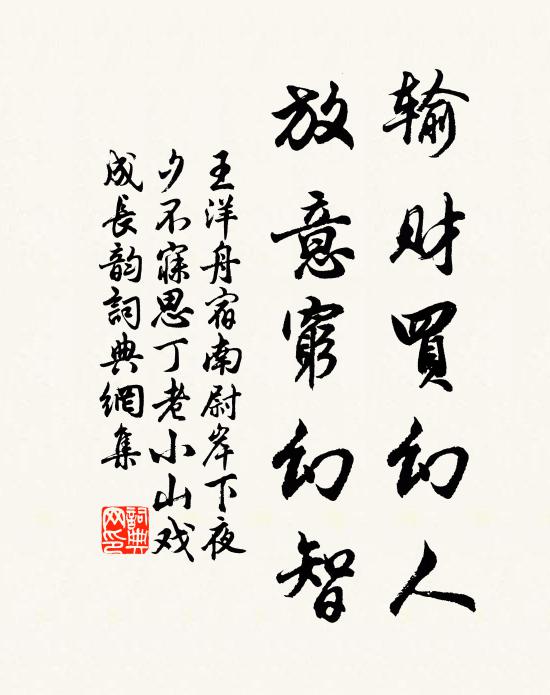 输财買幻人
放意窮幻智
王洋舟宿南尉岸下夜
少不寐思丁老小山戏
成長韵詞典網集
詞典网印